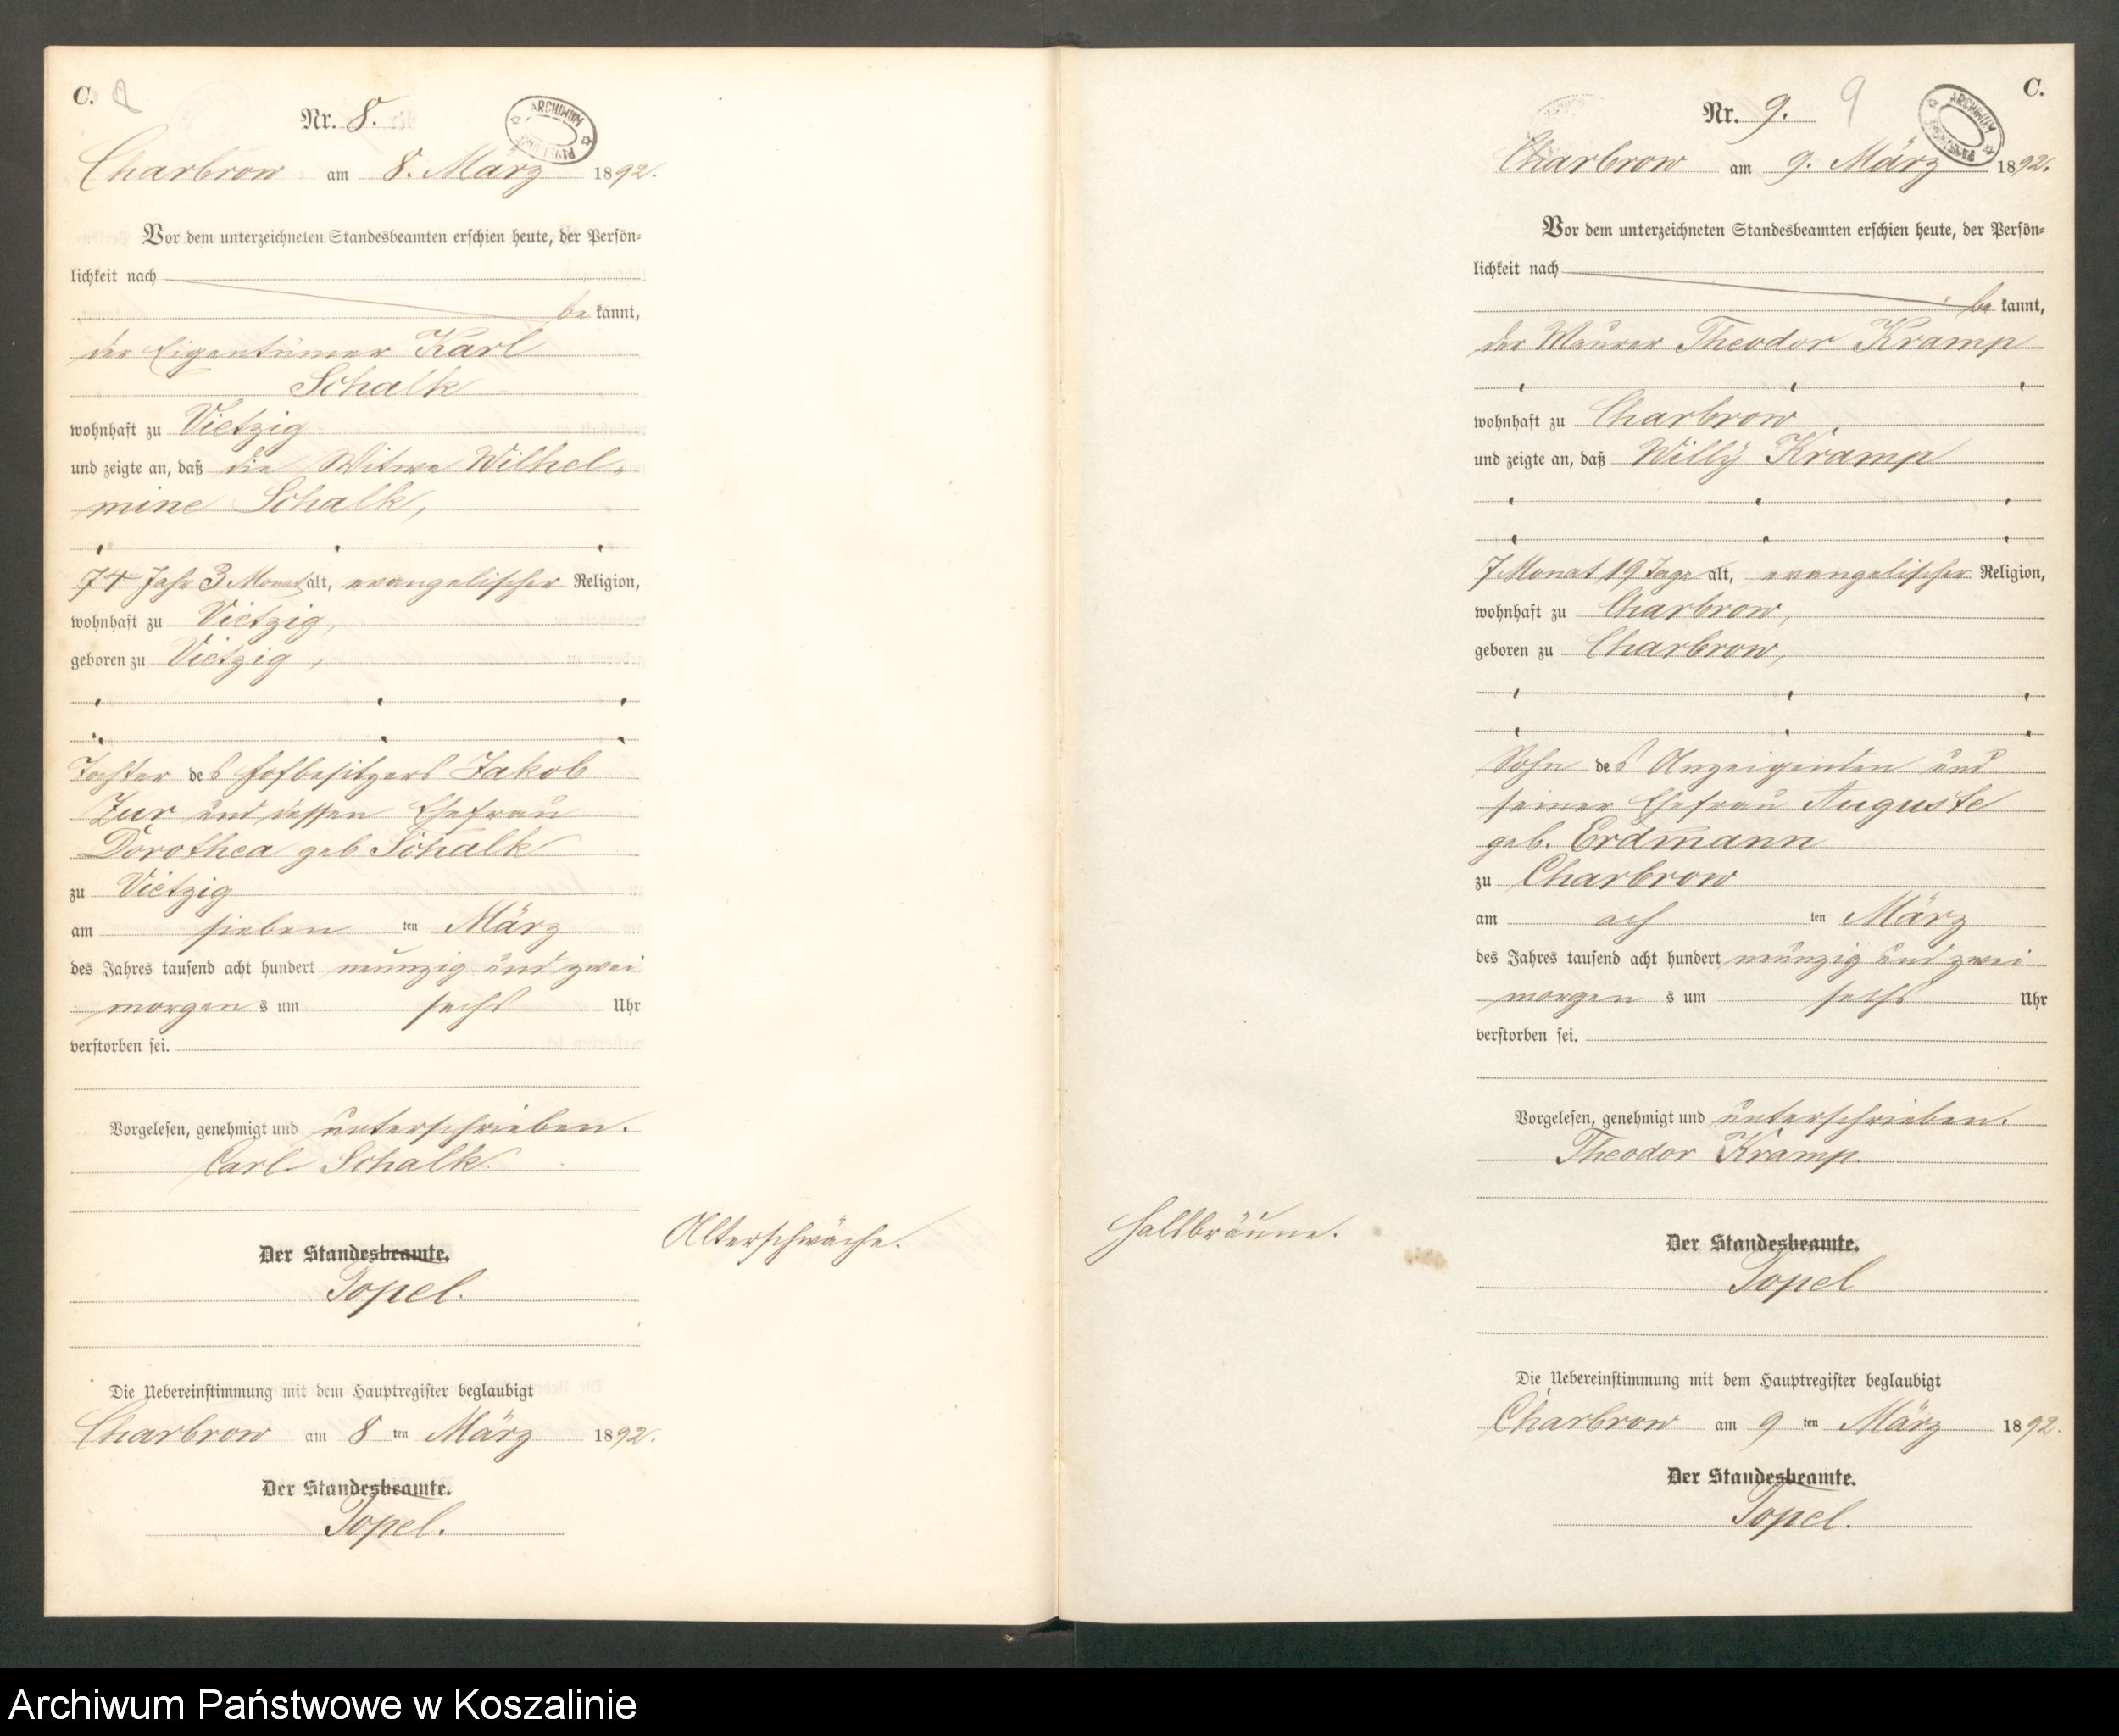 C. 8
Nr. 8.
ARCHIWUM
Charbrow am 8. März 1892.
Vor dem unterzeichneten Standesbeamten erschien heute, der Persön=
lichkeit nach
be kannt,
der Eigentümer Karl
Schalk
wohnhaft zu Vietzig
und zeigte an, daß die Witwe Wilhel-
mine Schalk,
74 Jahr 3 Monat alt, evangelischer Religion,
wohnhaft zu Vietzig,
geboren zu Vietzig,
Tochter des Hofbesitzers Jakob
Zur und dessen Ehefrau
Dorothea geb Schalk
zu Vietzig
am sieben ten März
des Jahres tausend acht hundert neunzig und zwei
morgen s um sechs Uhr
verstorben sei.
Vorgelesen, genehmigt und unterschrieben.
Carl Schalk.
Alterschwäche.
Der Standesbeamte.
Topel.
Die Uebereinstimmung mit dem Hauptregister beglaubigt
Charbrow am 8 ten März 1892.
Der Standesbeamte.
Topel.
C.
Nr. 9. 9
ARCHIWUM
Charbrow am 9. März 1892.
Vor dem unterzeichneten Standesbeamten erschien heute, der Persön=
lichkeit nach
be kannt,
der Maurer Theodor Kramp
wohnhaft zu Charbrow
und zeigte an, daß Willy Kramp
7 Monat 19 Tage alt, evangelischer Religion,
wohnhaft zu Charbrow,
geboren zu Charbrow,
Sohn des Anzeigenden und
seiner Ehefrau Auguste
geb. Erdmann
zu Charbrow
am ach ten März
des Jahres tausend acht hundert neunzig und zwei
morgen s um sechs Uhr
verstorben sei.
Vorgelesen, genehmigt und unterschrieben.
Theodor Kramp.
Halsbräune.
Der Standesbeamte.
Topel
Die Uebereinstimmung mit dem Hauptregister beglaubigt
Charbrow am 9 ten März 1892.
Der Standesbeamte.
Topel.
Archiwum Państwowe w Koszalinie